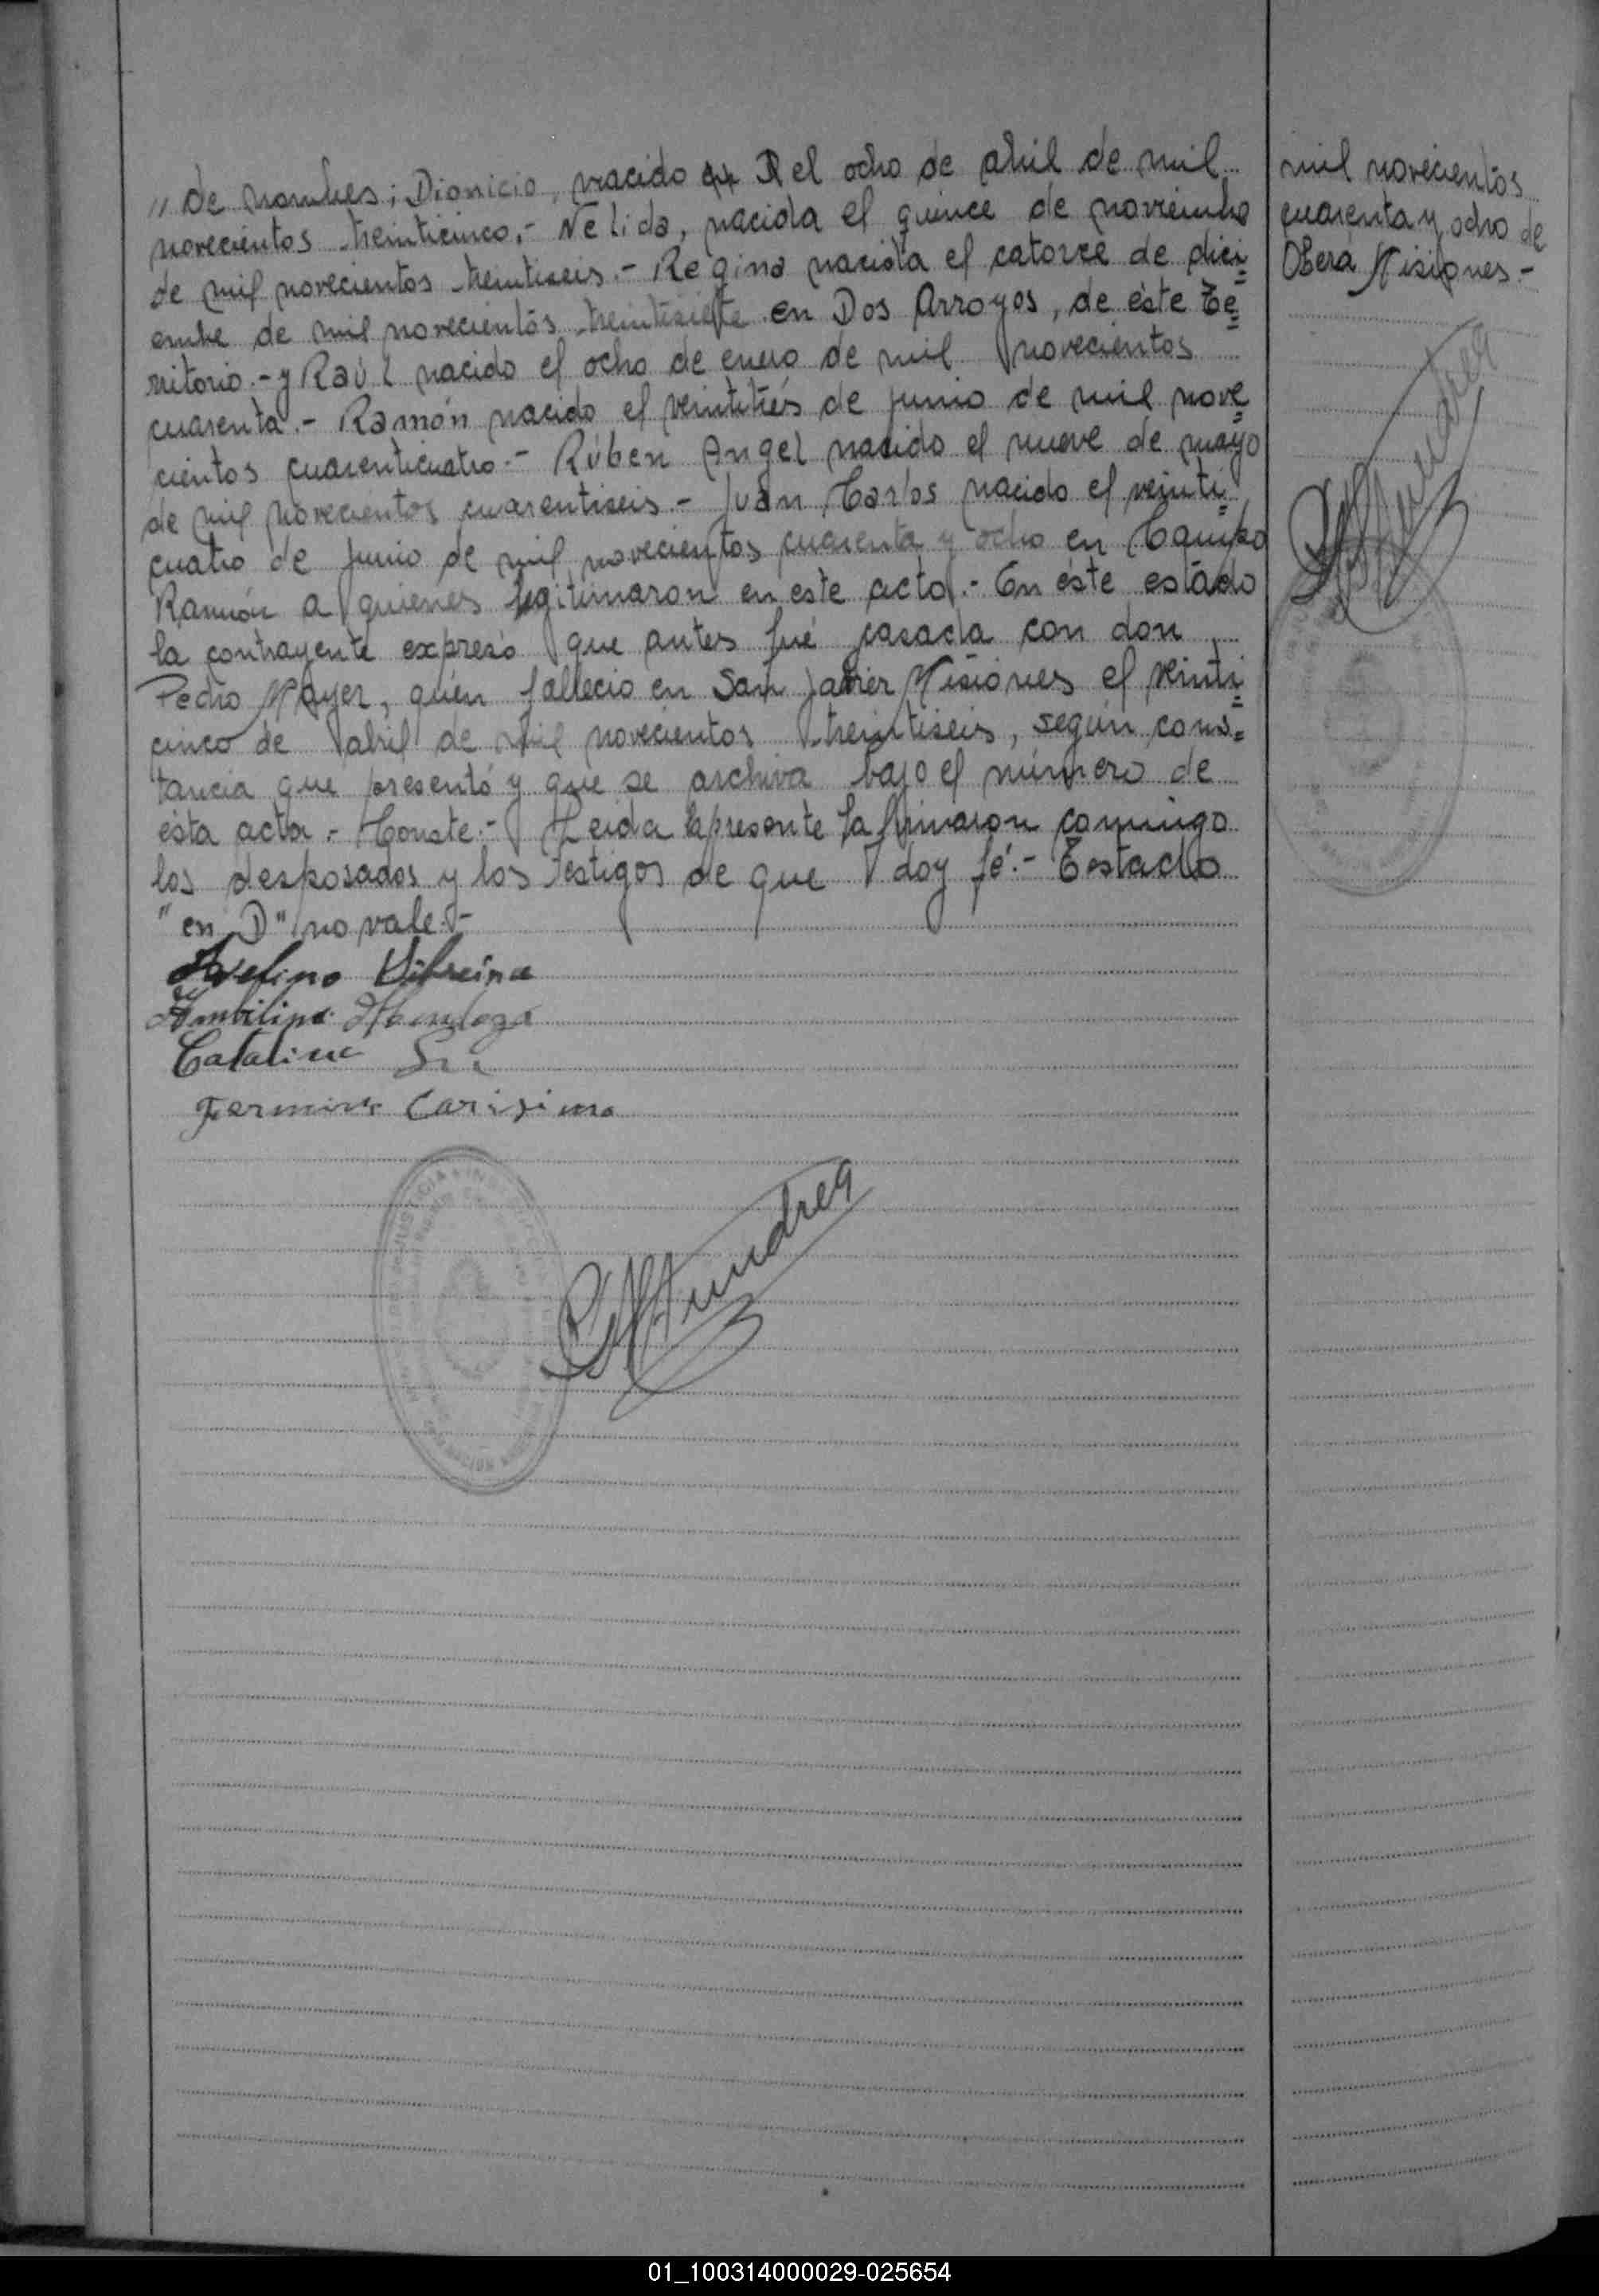 " de nombres; Dionicio, nacido en D el ocho de abril de mil
novecientos treinticinco.- Nélida, nacida el quince de noviembre
de mil novecientos treintiseis.- Regina nacida el catorce de dici=
embre de mil novecientos treintisiete en Dos Arroyos, de éste Te=
rritorio.- y Raúl nacido el ocho de enero de mil novecientos
cuarenta.- Ramón nacido el veintitrés de junio de mil nove=
cientos cuarenticuatro.- Rúben Angel nacido el nueve de mayo
de mil novecientos cuarentiseis.- Juan Carlos nacido el veinti=
cuatro de junio de mil novecientos cuarenta y ocho en Campo
Ramón a quienes legitimaron en este acto.- En éste estado
la contrayente expresó que antes fué casada con don
Pedro Mayer, quién fallecio en San Javier Misiones el veinti=
cinco de abril de mil novecientos treintiseis, según cons=
tancia que presentó y que se archiva bajo el número de
ésta acta.- Conste.- Leida la presente la firmaron conmigo
los desposados y los testigos de que doy fé.- Testado
"en D" no vale.-
Avelino
Ambilina Mendoza
Catalina
Fermin Carisimo
mil novecientos
cuarenta y ocho de
Oberá Misiones.-
01_100314000029-025654